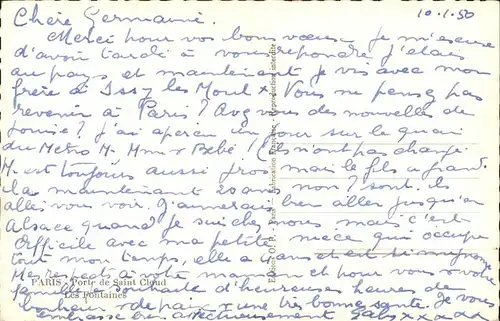 10-1-50
Chère Germaine.
Merci pour vos bons vœux je m'excuse
d'avoir tardé à vous répondre j'étais
au pays et maintenant je vis avec mon
frère à Issy les Moul x Vous ne pensez pas
revenir à Paris? Avez vous des nouvelles de
Louise? j'ai aperçu un jour sur le quai
du Metro M. Mme x Bébé! ils n'ont pas changé
M. est toujours aussi gros mais le fils a grand
il a maintenant 20 ans non? sont ils
allés vous voir J'aimerais bien aller jusqu'en
Alsace quand je suis chez nous mais c'est
difficile avec ma petite nièce qui occupe
tout mon temps, elle a ans et est si mignonne
Mes respects à votre maman et pour vous x votre
famille souhaite d'heureuses heures de
bonheur de paix x une très bonne santé. Je vous
embrasse bien affectueusement Gaby xxxxx
PARIS - Porte de Saint Cloud
Les Fontaines
Reproduction interdite